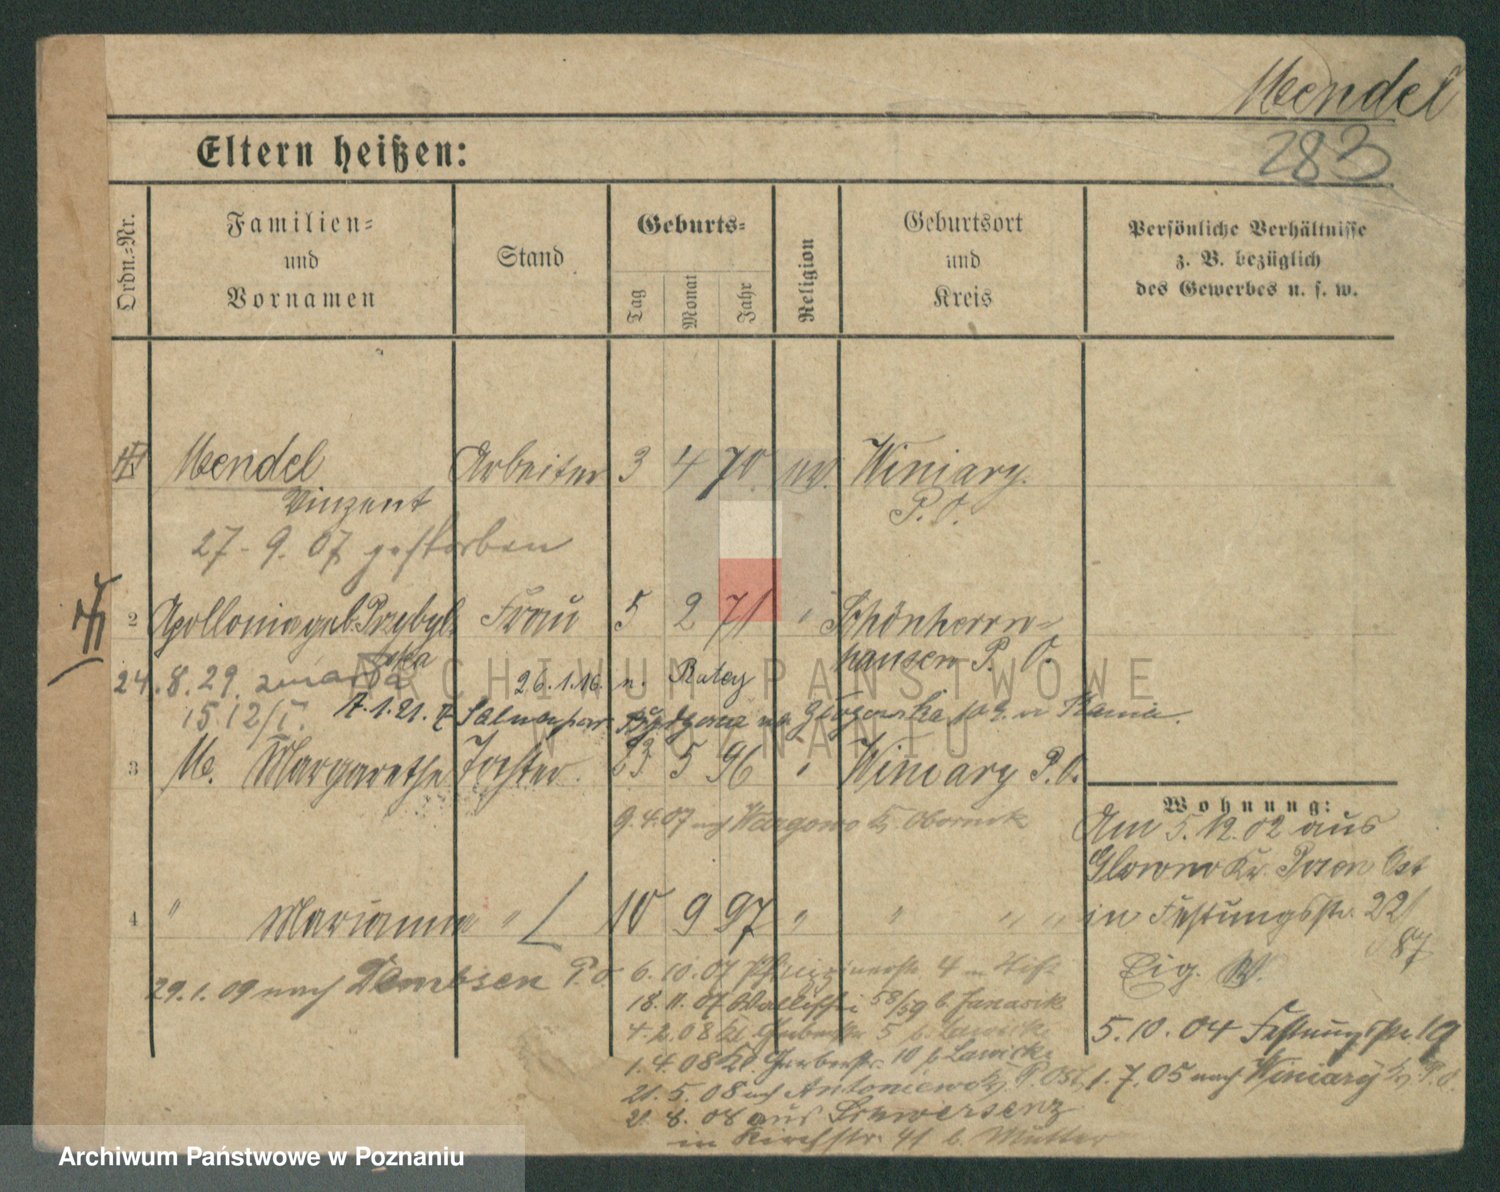 Mendel
283
Eltern heißen:
Ordn.=Nr.
Familien=
und
Vornamen
Stand
Geburts=
Tag
Monat
Jahr
Religion
Geburtsort
und
Kreis
Persönliche Verhältnisse
z. B. bezüglich
des Gewerbes u. s. w.
Mendel Arbeiter 3 4 70 Winiary.
Vinzent P. O.
27. 9. 07 gestorben
2 Apollonia geb. Przybyl Frau 5 2 71 " Schönherrn=
ska hausen P. O.
24. 8. 29. zmarła 26.1.16. n. Rataj
15 12/I. 4.1.21.
3 M. Margarethe Tochter 23 5 96 " Winiary P. O.
9.4.07 nach Wargowo Kr. Obornik
Wohnung:
Am 5.12.02 aus
Glowno Kr. Posen Ost
in Festungsstr. 22
87
4 " Marianna " 10 9 97 " " " "
29.1.09 nach Dembsen P. O.
6.10.07 4
18.11.07 Wallischei 58/59 b. Janasik
4.2.08 Kl. Gerberstr. 5 b. Lawicki
1.4.08 Kl. Gerberstr. 10 b. Lawicki
21.5.08 nach Antoniewo Kr. P. Ost
21.8.08 aus Schwersenz
in Kirchstr. 41 b. Mutter
5.10.04 Festungsstr. 19
1.7.05 nach Winiary Kr. P. O.
ARCHIWUM PAŃSTWOWE
W POZNANIU
Archiwum Państwowe w Poznaniu